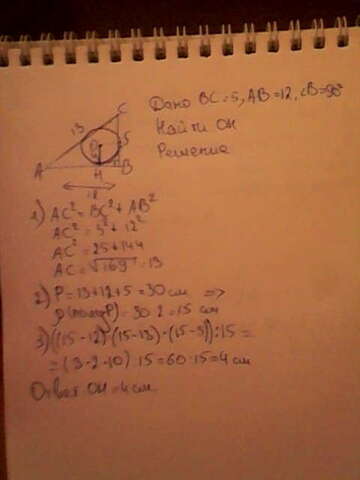 Дано BC=5, AB=12, ∠B=90°
Найти OH
Решение
C
13
5
O
A
H
B
12
1) AC²=BC²+AB²
AC²=5²+12²
AC²=25+144
AC=√169=13
2) P=13+12+5=30 см =>
p(полуP)=30:2=15 см
3) ((15-12)·(15-13)·(15-5)):15=
=(3·2·10):15=60:15=4 см
Ответ: OH=4 см